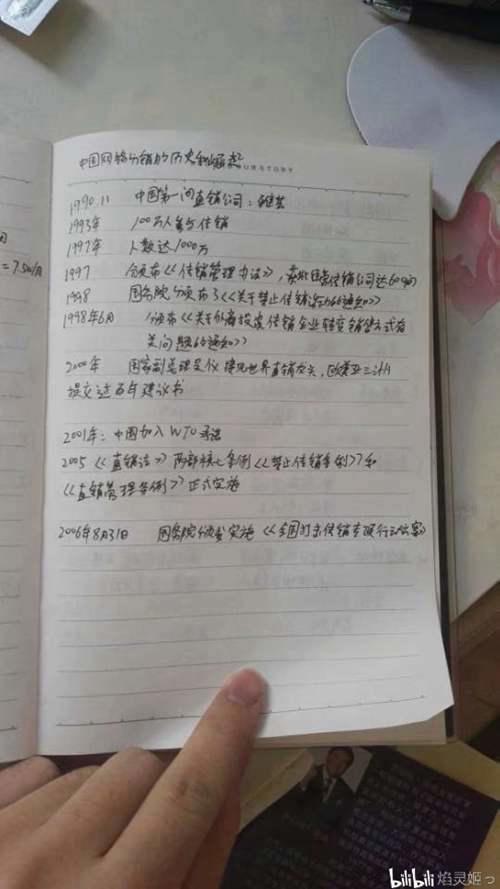 中国网络分销的历史和崛起
1990.11 中国第一间直销公司:雅芳
1993年 100万人参与传销
1997年 人数达1000万
1997 颁布《传销管理办法》,
1998 国务院颁布了《关于禁止传销活动的通知》
1998年6月 颁布《关于外商投资传销企业转变销售方式有
关问题的通知》
2000年 国家副总理吴仪接见世界直销龙头,
提交过百年建议书
2001年:中国加入WTO承诺
2005《直销法》两部核心条例《禁止传销条例》和
《直销管理条例》正式实施
2006年8月31日 国务院颁发实施《全国打击传销专项行动方案》
=7.5%/月
bilibili 焰灵姬っ